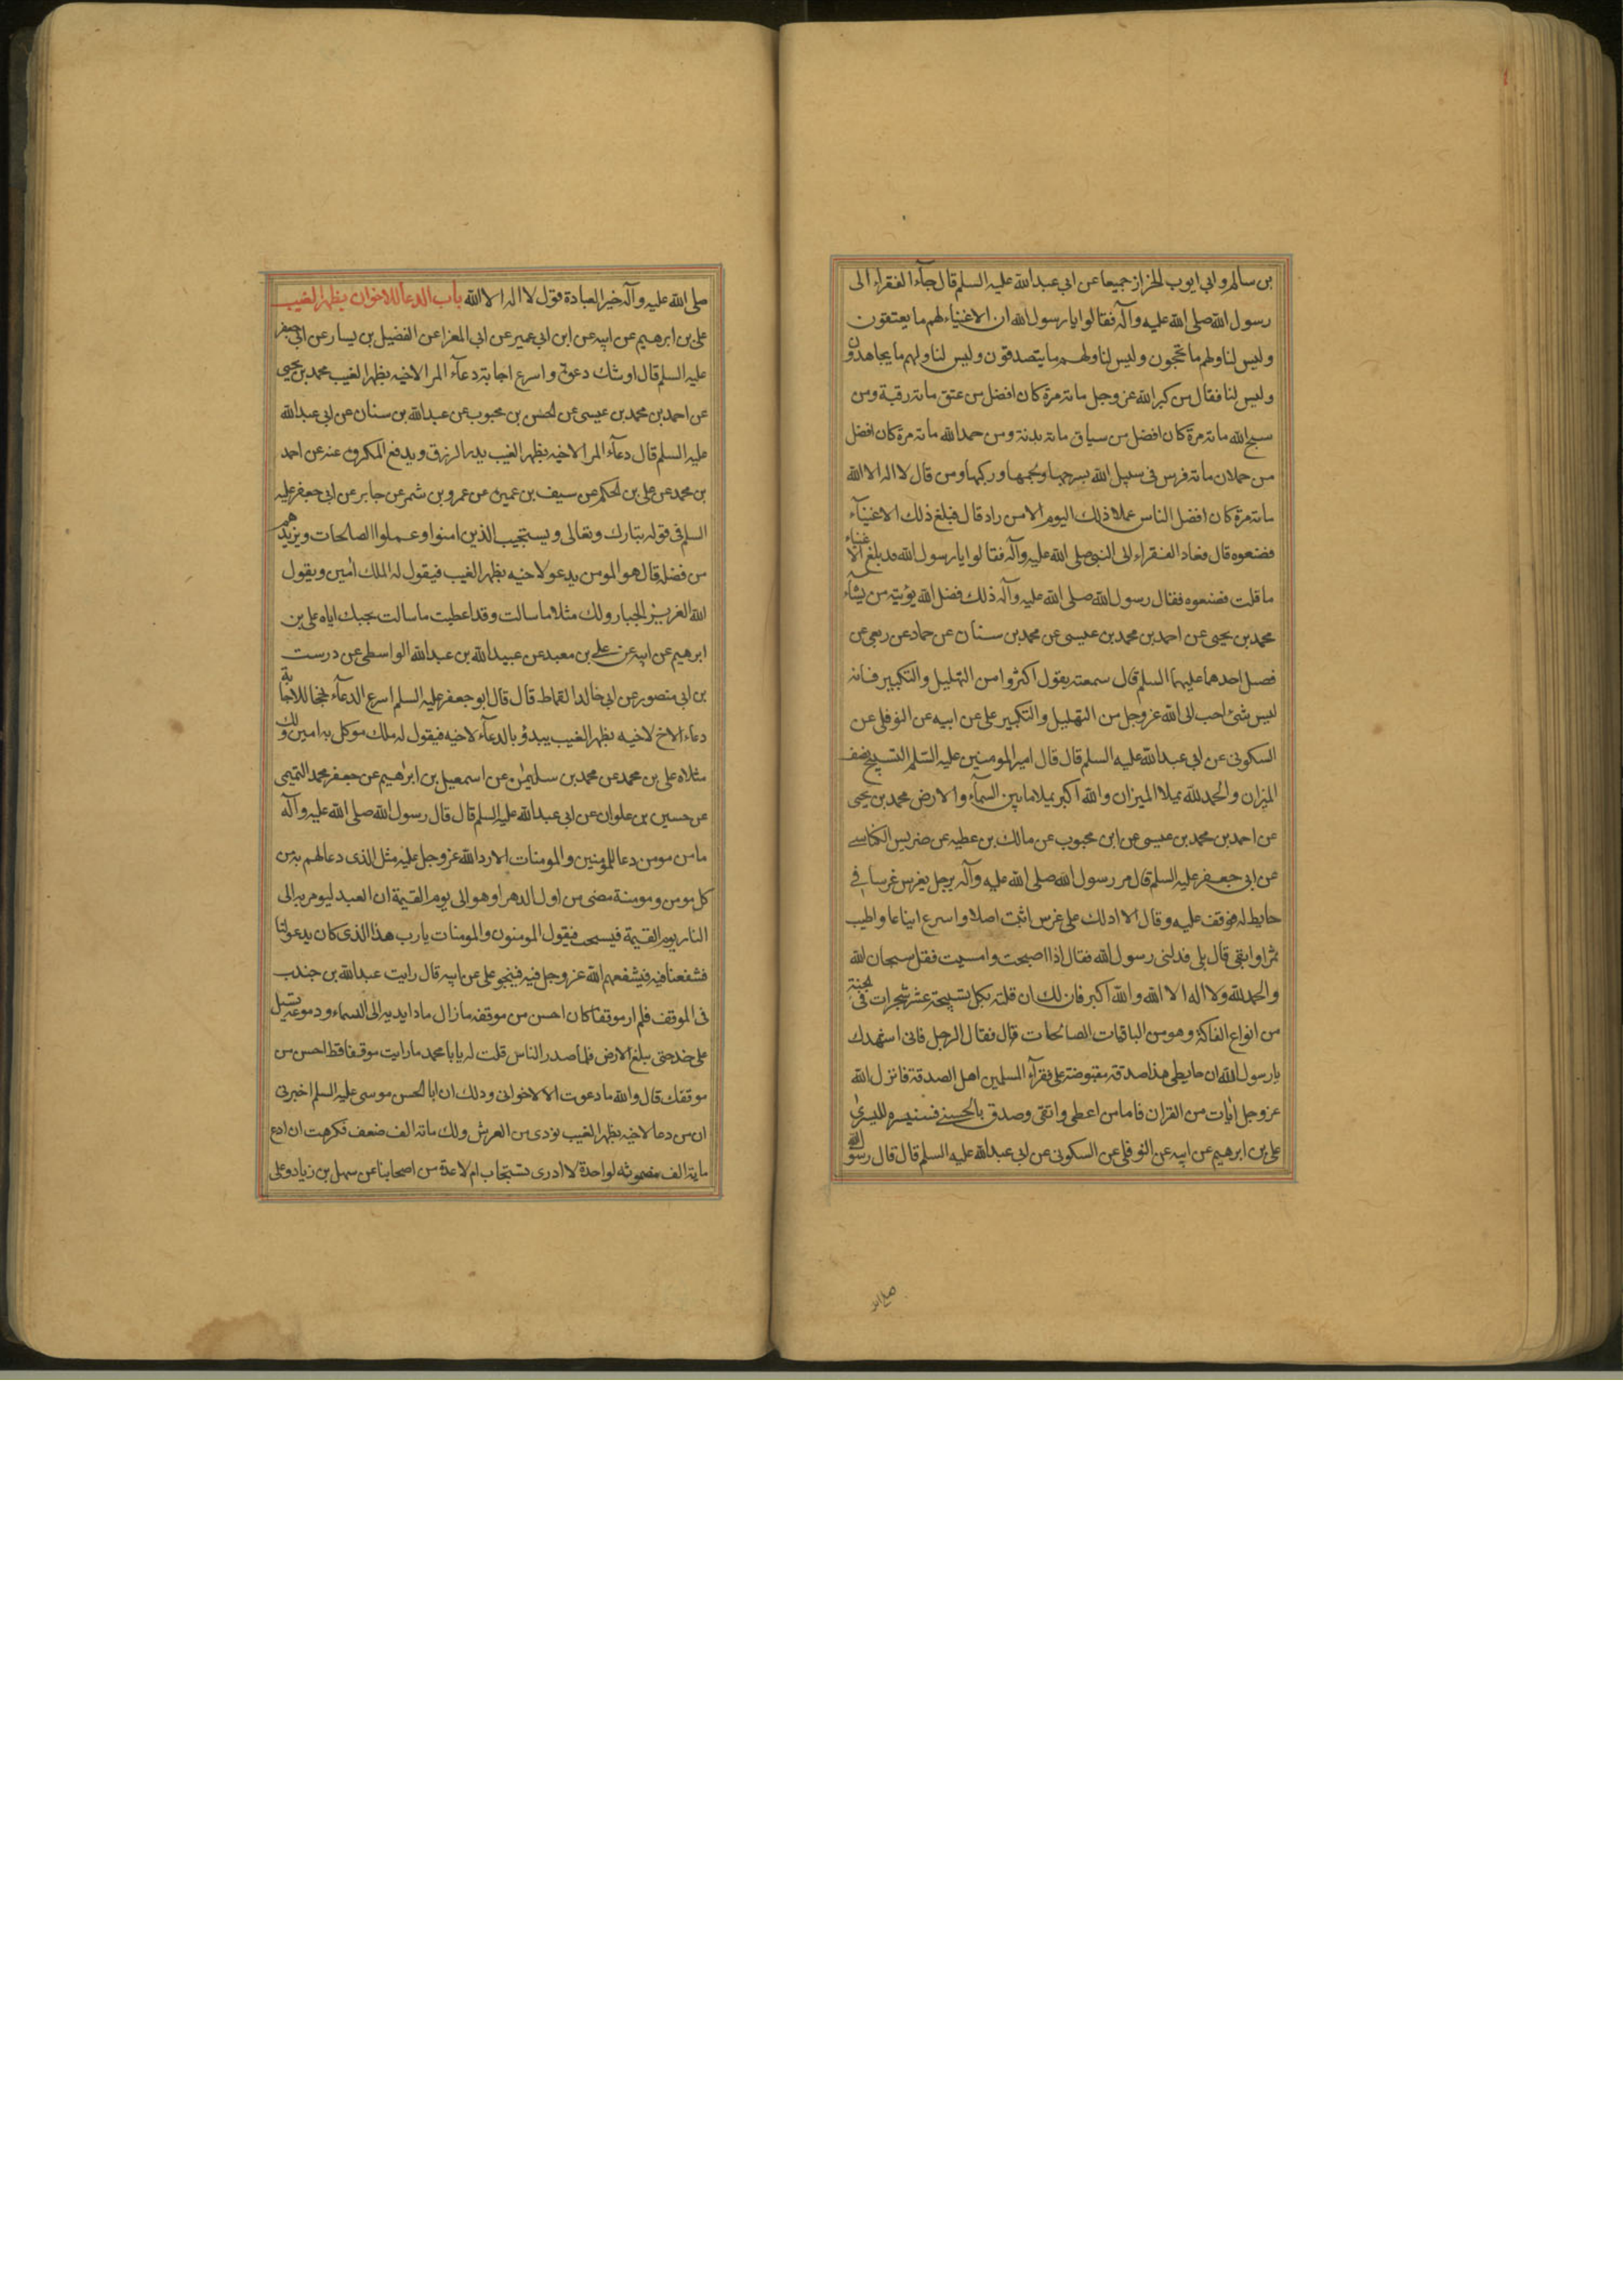 بن سالم وابي ايوب الخزاز جميعا عن ابي عبد الله عليه السلم قال جآء الفقراء الى
رسول الله صلى الله عليه وآله فقالوا يا رسول الله ان الاغنياء لهم ما يعتقون
وليس لنا ولهم ما يحجون وليس لنا ولهم ما يتصدقون وليس لنا ولهم ما يجاهدون
وليس لنا فقال من كبر الله عز وجل مائة مرة كان افضل من عتق مائة رقبة ومن
سبح الله مائة مرة كان افضل من سياق مائة بدنة ومن حمد الله مائة مرة كان افضل
من حملان مائة فرس في سبيل الله بسرجها ولجمها وركبها ومن قال لا اله الا الله
مائة مرة كان افضل الناس عملا ذلك اليوم الا من زاد قال فبلغ ذلك الاغنيآء
فصنعوه قال فعاد الفقراء الى النبي صلى الله عليه وآله فقالوا يا رسول الله قد بلغ الاغنياء
ما قلت فصنعوه فقال رسول الله صلى الله عليه وآله ذلك فضل الله يؤتيه من يشآء
محمد بن يحيى عن احمد بن محمد بن عيسى عن محمد بن سنان عن حماد عن ربعي عن
فضيل احدهما عليهما السلم قال سمعته يقول اكثروا من التهليل والتكبير فانه
ليس شئ احب الى الله عز وجل من التهليل والتكبير علي عن ابيه عن النوفلي عن
السكوني عن ابي عبد الله عليه السلم قال قال امير المومنين عليه السلم التسبيح نصف
الميزان والحمد لله يملا الميزان والله اكبر يملا ما بين السمآء والارض محمد بن يحيى
عن احمد بن محمد بن عيسى عن ابن محبوب عن مالك بن عطيه عن ضريس الكناسي
عن ابي جعفر عليه السلم قال مر رسول الله صلى الله عليه وآله برجل يغرس غرسا في
حايط له فوقف عليه وقال الا ادلك على غرس اثبت اصلا واسرع ايناعا واطيب
ثمرا وابقى قال بلى فدلني رسول الله فقال اذا اصبحت وامسيت فقل سبحان الله
والحمد لله ولا اله الا الله والله اكبر فان لك ان قلته بكل تسبيحة عشر شجرات في الجنة
من انواع الفاكهة وهو من الباقيات الصالحات قال فقال الرجل فاني اشهدك
يا رسول الله ان حايطي هذا صدقة مقبوضة على فقرآء المسلمين اهل الصدقة فانزل الله
عز وجل ايات من القران فاما من اعطى واتقى وصدق بالحسنى فسنيسره لليسرى
علي بن ابرهيم عن ابيه عن النوفلي عن السكوني عن ابي عبد الله عليه السلم قال قال رسول الله
صلى الله
صلى الله عليه وآله خير العبادة قول لا اله الا الله باب الدعا للاخوان بظهر الغيب
علي بن ابرهيم عن ابيه عن ابن ابي عمير عن ابي المغرا عن الفضيل بن يسار عن ابي جعفر
عليه السلم قال اوشك دعوة واسرع اجابة دعآء المرء لاخيه بظهر الغيب محمد بن يحيى
عن احمد بن محمد بن عيسى عن الحسن بن محبوب عن عبد الله بن سنان عن ابي عبد الله
عليه السلم قال دعآء المرء لاخيه بظهر الغيب يدر الرزق ويدفع المكروه عنه عن احمد
بن محمد عن علي بن الحكم عن سيف بن عميرة عن عمرو بن شمر عن جابر عن ابي جعفر عليه
السلم في قوله تبارك وتعالى ويستجيب الذين امنوا وعملوا الصالحات ويزيدهم
من فضله قال هو المومن يدعو لاخيه بظهر الغيب فيقول له الملك امين ويقول
الله العزيز الجبار ولك مثلا ما سالت وقد اعطيت ما سالت بحبك اياه علي بن
ابرهيم عن ابيه عن علي بن معبد عن عبيد الله بن عبد الله الواسطي عن درست
بن ابي منصور عن ابي خالد القماط قال قال ابو جعفر عليه السلم اسرع الدعآء نجحا للاجابة
دعاء الاخ لاخيه بظهر الغيب يبدؤ بالدعآء لاخيه فيقول له ملك موكل به امين ولك
مثلاه علي بن محمد عن محمد بن سليمن عن اسمعيل بن ابرهيم عن جعفر محمد التميمي
عن حسين بن علوان عن ابي عبد الله عليه السلم قال قال رسول الله صلى الله عليه وآله
ما من مومن دعا للمؤمنين والمومنات الا رد الله عز وجل عليه مثل الذي دعا لهم به من
كل مومن ومومنة مضى من اول الدهر او هو الى يوم القيمة ان العبد ليومر به الى
النار يوم القيمة فيسحب فيقول المومنون والمومنات يا رب هذا الذي كان يدعو لنا
فشفعنا فيه فيشفعهم الله عز وجل فيه فينجو علي عن ابيه قال رايت عبد الله بن جندب
في الموقف فلم ار موقفا كان احسن من موقفه ما زال مادا يديه الى السماء ودموعه تسيل
على خده حتى يبلغ الارض فلما صدر الناس قلت له يا با محمد ما رايت موقفا قط احسن من
موقفك قال والله ما دعوت الا لاخواني وذلك ان ابا الحسن موسى عليه السلم اخبرني
ان من دعا لاخيه بظهر الغيب نودي من العرش ولك مائة الف ضعف فكرهت ان ادع
ماية الف مضمونه لواحدة لا ادري تستجاب ام لا عدة من اصحابنا عن سهل بن زياد وعلي